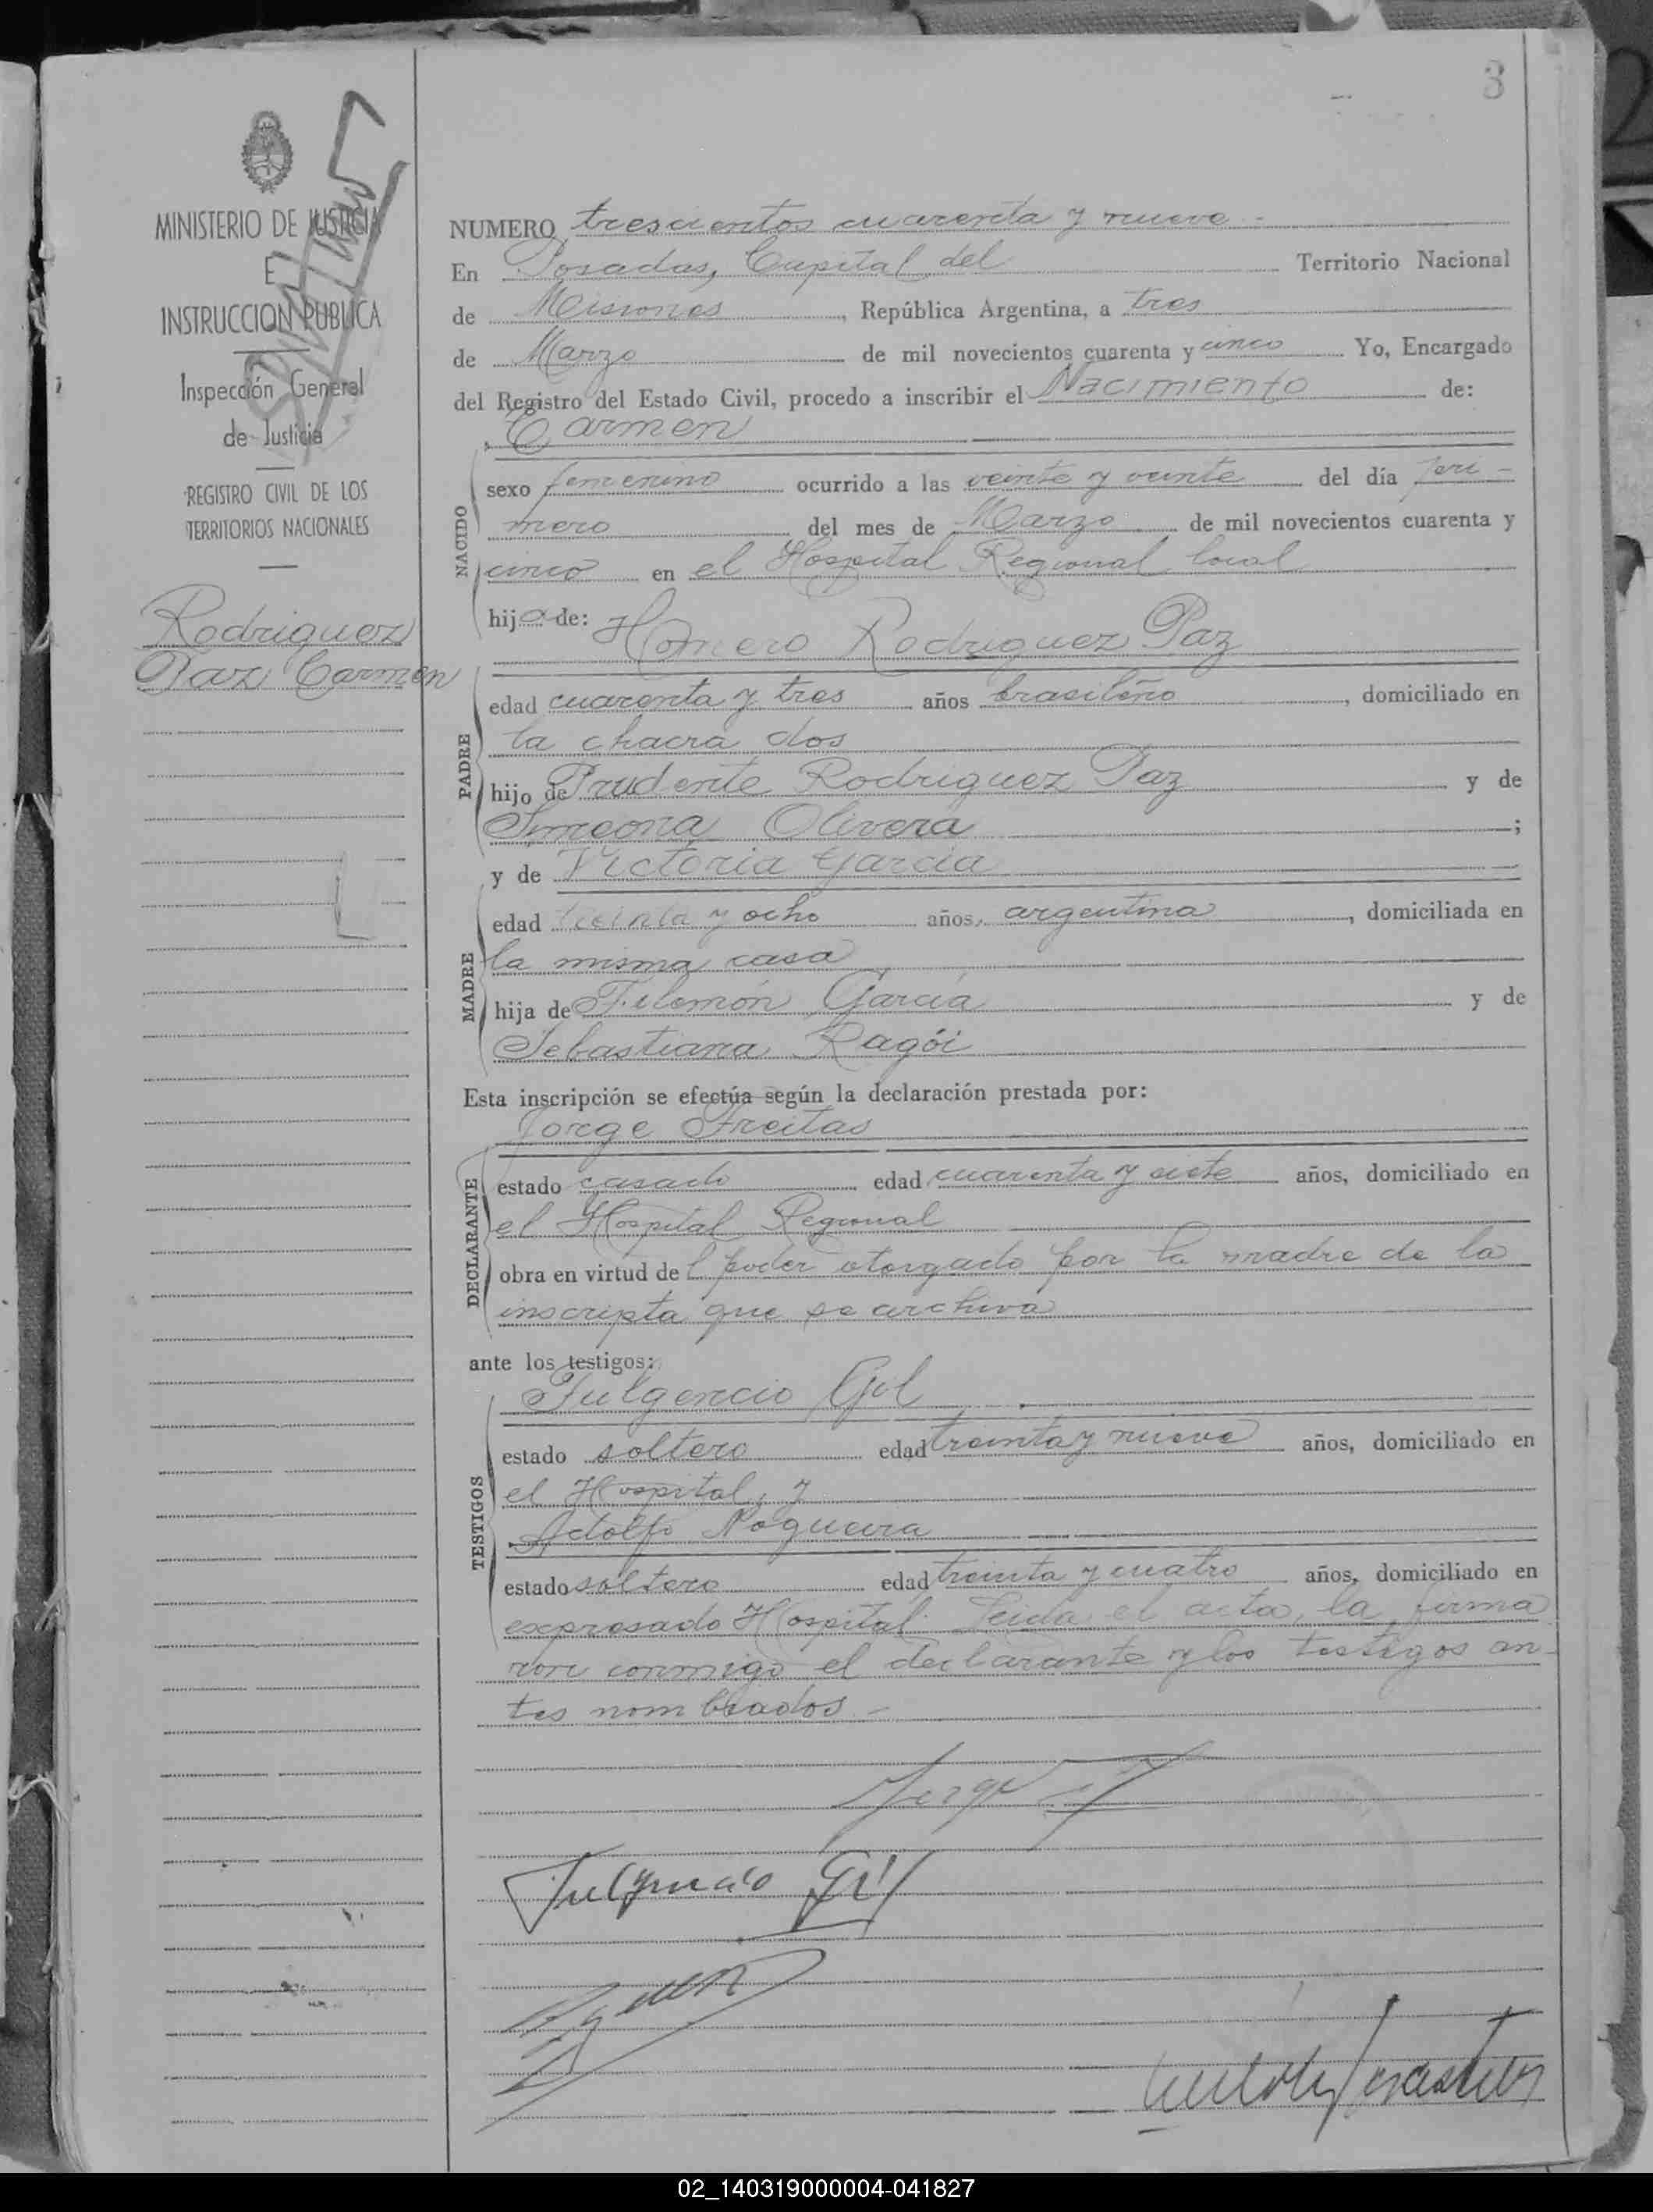 3
MINISTERIO DE JUSTICIA
E
INSTRUCCION PUBLICA
Inspección General
de Justicia
REGISTRO CIVIL DE LOS
TERRITORIOS NACIONALES
Rodriguez
Paz Carmen
NUMERO trescientos cuarenta y nueve -
En Posadas, Capital del Territorio Nacional
de Misiones, República Argentina, a tres
de Marzo de mil novecientos cuarenta y cinco Yo, Encargado
del Registro del Estado Civil, procedo a inscribir el Nacimiento de:
Carmen
NACIDO
sexo femenino ocurrido a las veinte y veinte del día pri-
mero del mes de Marzo de mil novecientos cuarenta y
cinco en el Hospital Regional local
hija de: Homero Rodriguez Paz
PADRE
edad cuarenta y tres años brasileño, domiciliado en
la chacra dos
hijo de Prudente Rodriguez Paz y de
Simeona Olivera;
y de Victoria Garcia
MADRE
edad treinta y ocho años, argentina, domiciliada en
la misma casa
hija de Filemón García y de
Sebastiana Ragói
Esta inscripción se efectúa según la declaración prestada por:
Jorge Freitas
DECLARANTE
estado casado edad cuarenta y siete años, domiciliado en
el Hospital Regional
obra en virtud del poder otorgado por la madre de la
inscripta que se archiva
ante los testigos:
Fulgencio Gil
TESTIGOS
estado soltero edad treinta y nueve años, domiciliado en
el Hospital, y
Adolfo Nogueira
estado soltero edad treinta y cuatro años, domiciliado en
expresado Hospital. Leida el acta, la firma
ron conmigo el declarante y los testigos an-
tes nombrados -
Jorge
Fulgencio Gil
02_140319000004-041827